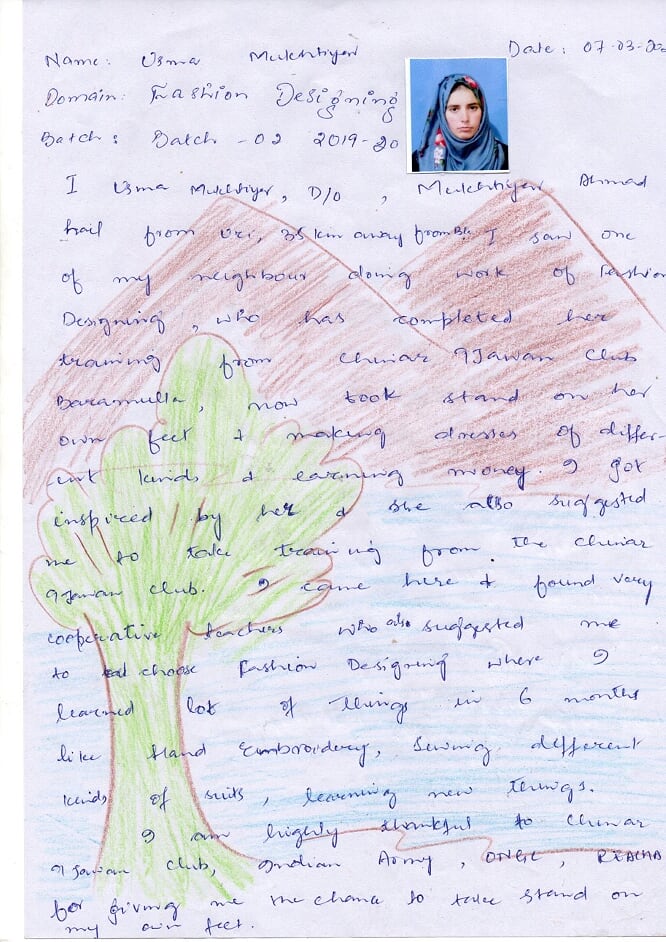 Name: Usma Mukhtiyer Date: 07-03-20
Domain: Fashion Designing
Batch: Batch - 02 2019-20
I Usma Mukhtiyer, D/o, Mukhtiyer Ahmad
hail from Uri, 35 km away from I saw one
of my neighbour doing work of Fashion
Designing, who has completed her
training from Chinar 9Jawan Club
Baramulla, now took stand on her
own feet & making dresses of differ-
ent kinds & earning money. I got
inspired by her & she also suggested
me to take training from the Chinar
9Jawan Club. I came here & found very
cooperative teachers who also suggested me
to choose Fashion Designing where I
learned lot of things in 6 months
like Hand Embroidery, Sewing different
kinds of suits, learning new things.
I am highly thankful to Chinar
9Jawan Club, Indian Army, ONGC,
for giving me the chance to take stand on
my own feet.